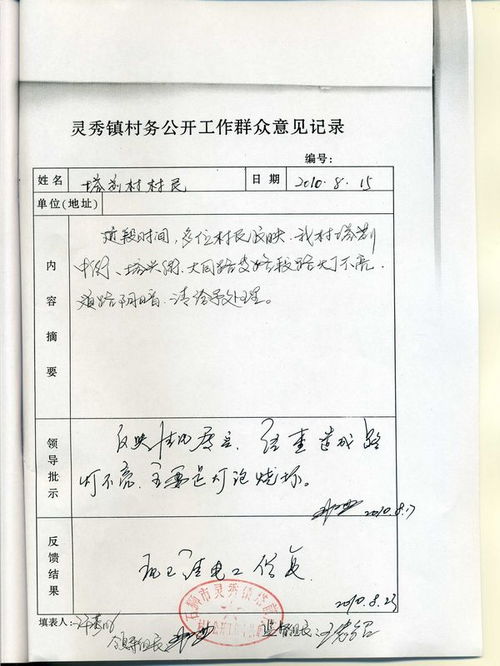 灵秀镇村务公开工作群众意见记录
编号:
姓名 塔前村村民 日期 2010.8.15
单位(地址)
内容摘要
这段时间,多位村民反映,我村塔前
中街、塔兴街、大同路 路段路灯不亮,
道路阴暗,请领导处理。
领导批示
反映情况属实,经查造成路
灯不亮,主要是灯泡烧坏。
2010.8.17
反馈结果
现已请电工修复。
2010.8.23
石狮市灵秀镇塔前
填表人:
领导组长 监督组长